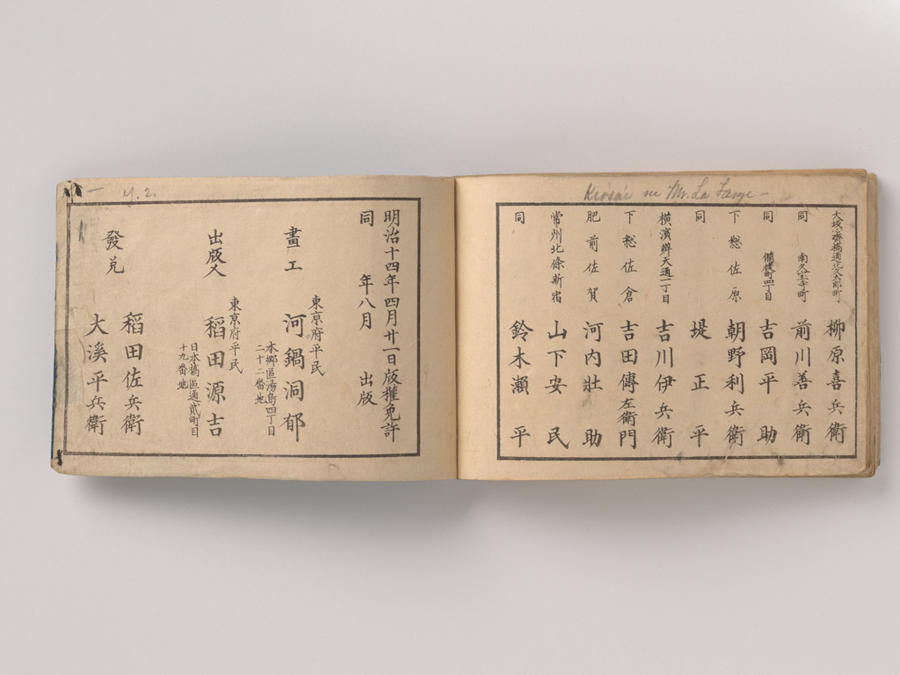 Kiosai su Mr. La Farge —
大坂心齋橋通北久太郎町 柳原喜兵衛
同 南久宝寺町 前川善兵衛
同 備後町四丁目 吉岡平助
下總佐原 朝野利兵衛
同 堤正平
横濱辨天通一丁目 吉川伊兵衛
下總佐倉 吉田傳左衛門
肥前佐賀 河内壮助
常州北條新宿 山下安民
同 鈴木瀬平
明治十四年四月廿一日版權免許
同年八月 出版
東京府平民
畫工 河鍋洞郁
本郷區湯島四丁目
二十二番地
東京府平民
出版人 稻田源吉
日本橋區通貳町目
十九番地
發兌 稻田佐兵衛
大溪平兵衛